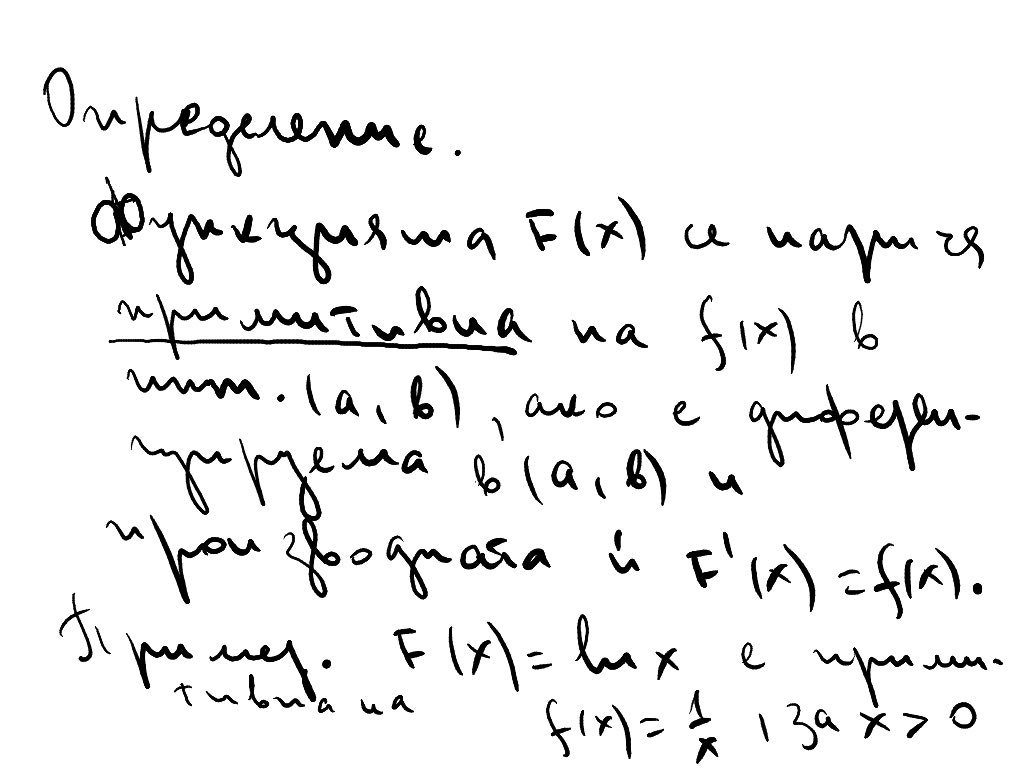 Определение.
Функцията F(x) се нарича
примитивна на f(x) в
инт. (a, b), ако е диферен-
цируема в (a, b) и
производната ѝ F'(x) = f(x).
Пример. F(x) = ln x е прими-
тивна на f(x) = 1/x, за x > 0